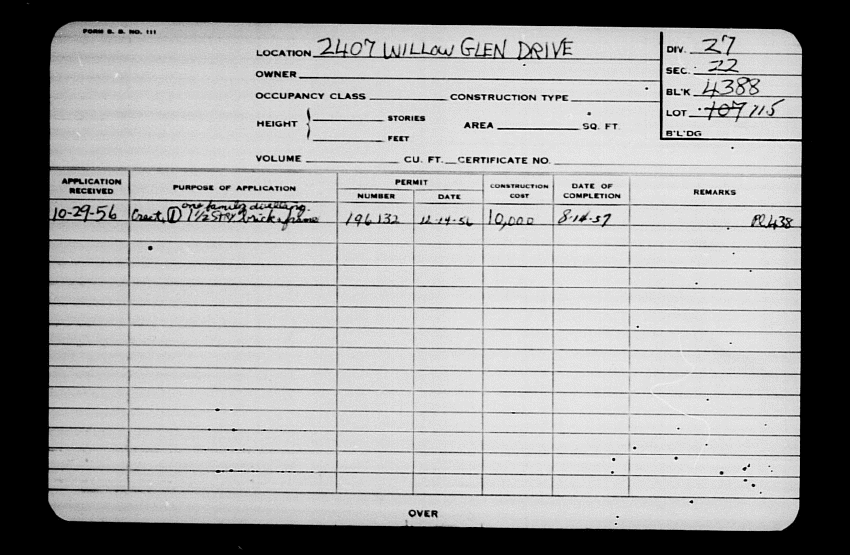 FORM S. B. NO. 111
LOCATION 2407 WILLOW GLEN DRIVE
DIV. 27
OWNER
SEC. 22
OCCUPANCY CLASS CONSTRUCTION TYPE
BL'K 4388
HEIGHT { STORIES AREA SQ. FT.
LOT 107 115
FEET
B'L'DG
VOLUME CU. FT. CERTIFICATE NO.
APPLICATION RECEIVED PURPOSE OF APPLICATION PERMIT NUMBER DATE CONSTRUCTION COST DATE OF COMPLETION REMARKS
one family dwelling
10-29-56 Erect (1) 1 1/2 STRY brick & frame 196132 12-14-56 10,000 8-14-57 438
OVER